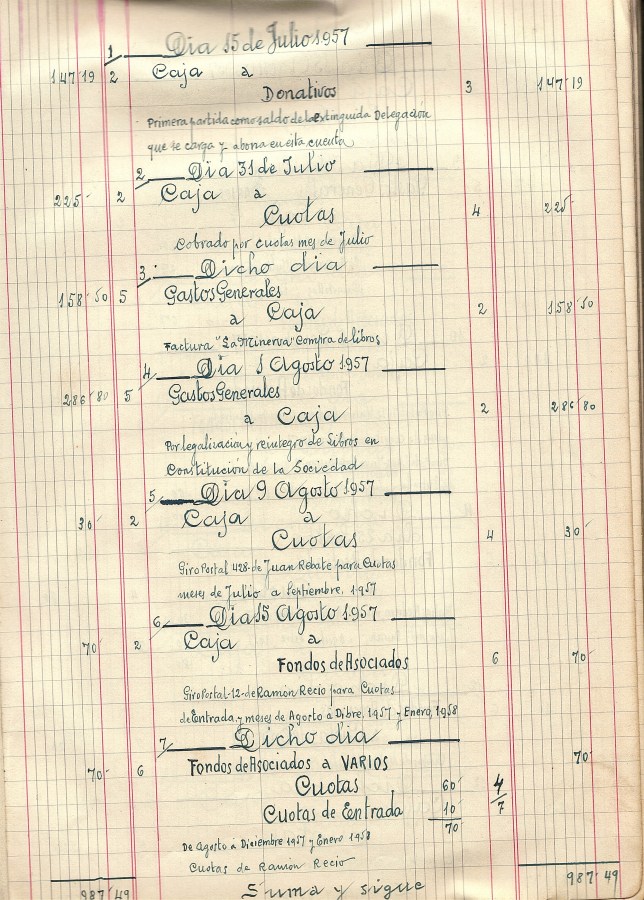 1 Dia 15 de Julio 1957
147'19 2 Caja a
Donativos 3 147'19
Primera partida como saldo de la extinguida Delegación
que se carga y abona en esta cuenta
2 Dia 31 de Julio
225- 2 Caja a
Cuotas 4 225-
Cobrado por cuotas mes de Julio
3 Dicho dia
158'50 5 Gastos Generales
a Caja 2 158'50
Factura "La Minerva" Compra de libros
4 Dia 1 Agosto 1957
286'80 5 Gastos Generales
a Caja 2 286'80
Por legalización y reintegro de Libros en
Constitución de la Sociedad
5 Dia 9 Agosto 1957
30- 2 Caja a
Cuotas 4 30-
Giro Postal 428-de Juan Rebate para Cuotas
meses de Julio a Septiembre, 1957
6 Dia 15 Agosto 1957
70- 2 Caja a
Fondos de Asociados 6 70-
Giro Postal-12-de Ramón Recio para Cuotas
de Entrada, y meses de Agosto a Dibre, 1957 y Enero, 1958
7 Dicho dia
70- 6 Fondos de Asociados a VARIOS 70-
Cuotas 60- 4
Cuotas de Entrada 10- 7
70-
De Agosto a Diciembre 1957 y Enero 1958
Cuotas de Ramón Recio
987'49 Suma y sigue 987'49